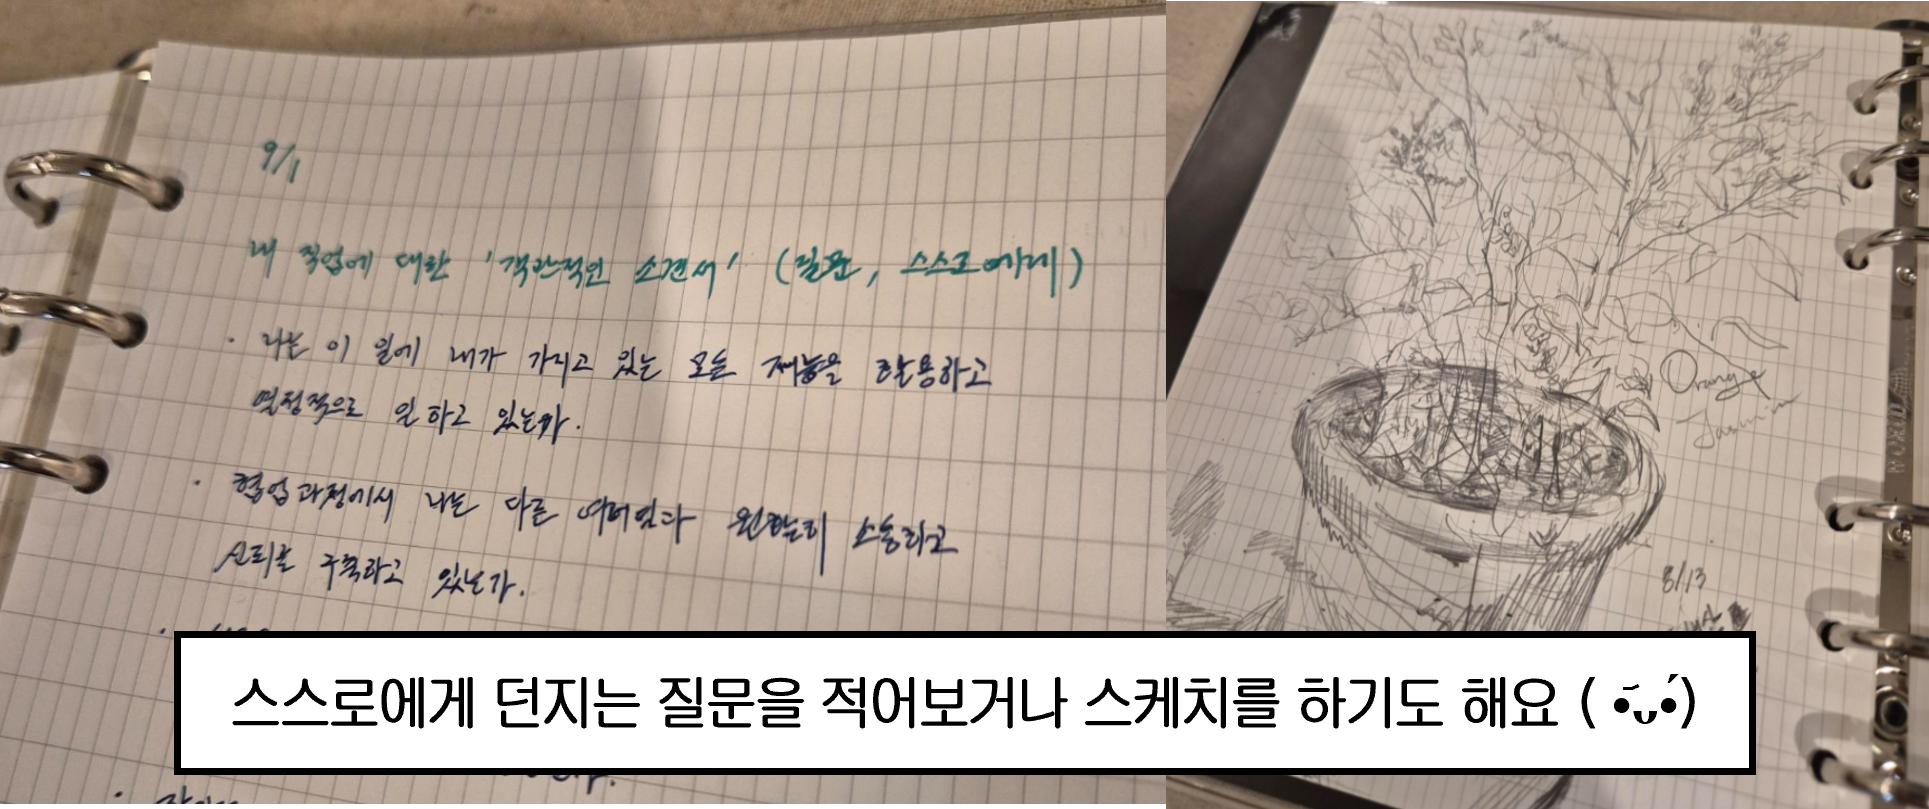 9/1
내 직업에 대한 '객관적인 소견서' (질문, 스스로에게)
· 나는 이 일에 내가 가지고 있는 모든 재능을 활용하고
열정적으로 일하고 있는가.
· 협업과정에서 나는 다른 원활히 소통하고
신뢰를 구축하고 있는가.
Orange
Jasmine
8/13
스스로에게 던지는 질문을 적어보거나 스케치를 하기도 해요 ( •̆ᴗ•́)